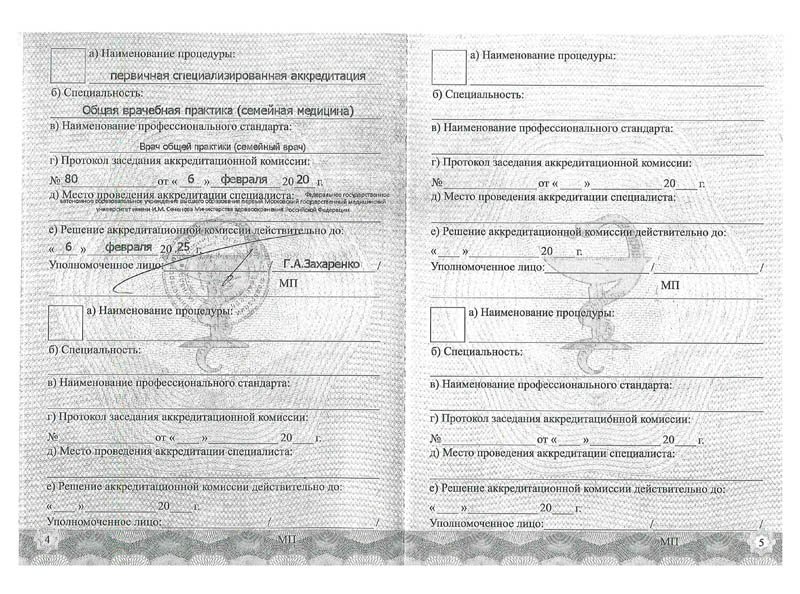 а) Наименование процедуры:
первичная специализированная аккредитация
б) Специальность:
Общая врачебная практика (семейная медицина)
в) Наименование профессионального стандарта:
Врач общей практики (семейный врач)
г) Протокол заседания аккредитационной комиссии:
№ 80 от « 6 » февраля 2020 г.
д) Место проведения аккредитации специалиста: Федеральное государственное
автономное образовательное учреждение высшего образования первый Московский государственный медицинский
университет имени И.М. Сеченова Министерства здравоохранения Российской Федерации
е) Решение аккредитационной комиссии действительно до:
« 6 » февраля 2025 г.
Уполномоченное лицо: / Г.А.Захаренко /
МП
а) Наименование процедуры:
б) Специальность:
в) Наименование профессионального стандарта:
г) Протокол заседания аккредитационной комиссии:
№ от « » 20 г.
д) Место проведения аккредитации специалиста:
е) Решение аккредитационной комиссии действительно до:
« » 20 г.
Уполномоченное лицо: / /
4 МП
а) Наименование процедуры:
б) Специальность:
в) Наименование профессионального стандарта:
г) Протокол заседания аккредитационной комиссии:
№ от « » 20 г.
д) Место проведения аккредитации специалиста:
е) Решение аккредитационной комиссии действительно до:
« » 20 г.
Уполномоченное лицо: / /
МП
а) Наименование процедуры:
б) Специальность:
в) Наименование профессионального стандарта:
г) Протокол заседания аккредитационной комиссии:
№ от « » 20 г.
д) Место проведения аккредитации специалиста:
е) Решение аккредитационной комиссии действительно до:
« » 20 г.
Уполномоченное лицо: / /
МП 5